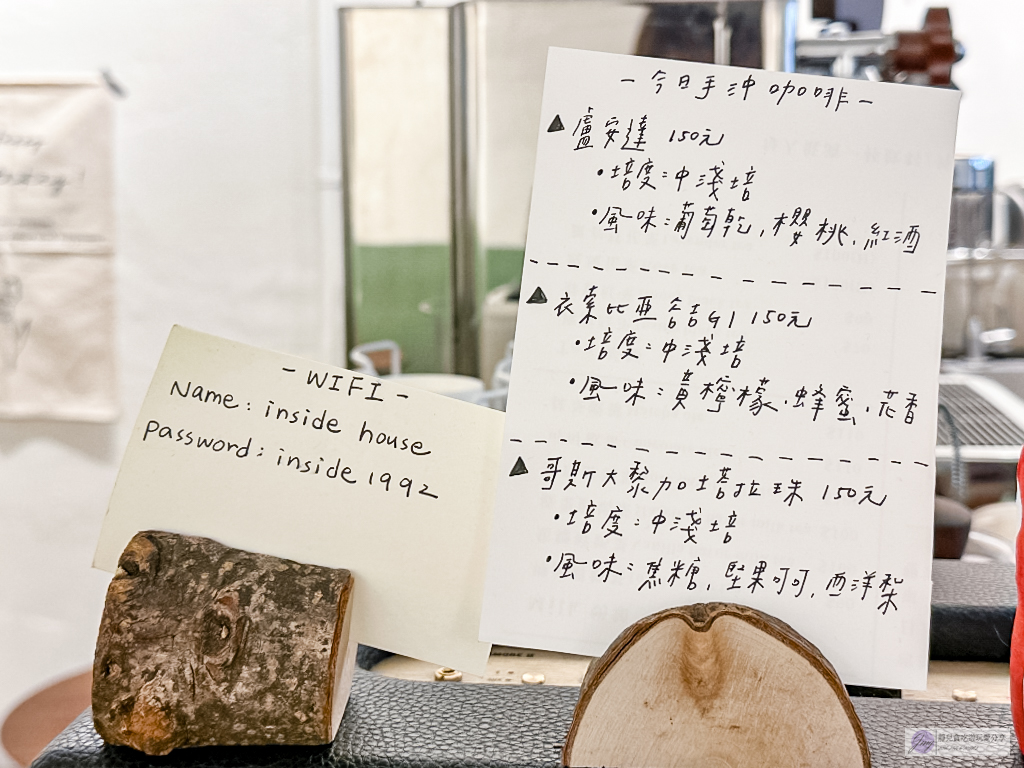 - WIFI -
Name: inside house
Password: inside 1992
- 今日手沖咖啡 -
▲盧安達 150元
•培度:中淺培
•風味:葡萄乾,櫻桃,紅酒
▲衣索比亞 谷吉G1 150元
•培度:中淺培
•風味:黃檸檬,蜂蜜,花香
▲哥斯大黎加 塔拉珠 150元
•培度:中淺培
•風味:焦糖,堅果可可,西洋梨